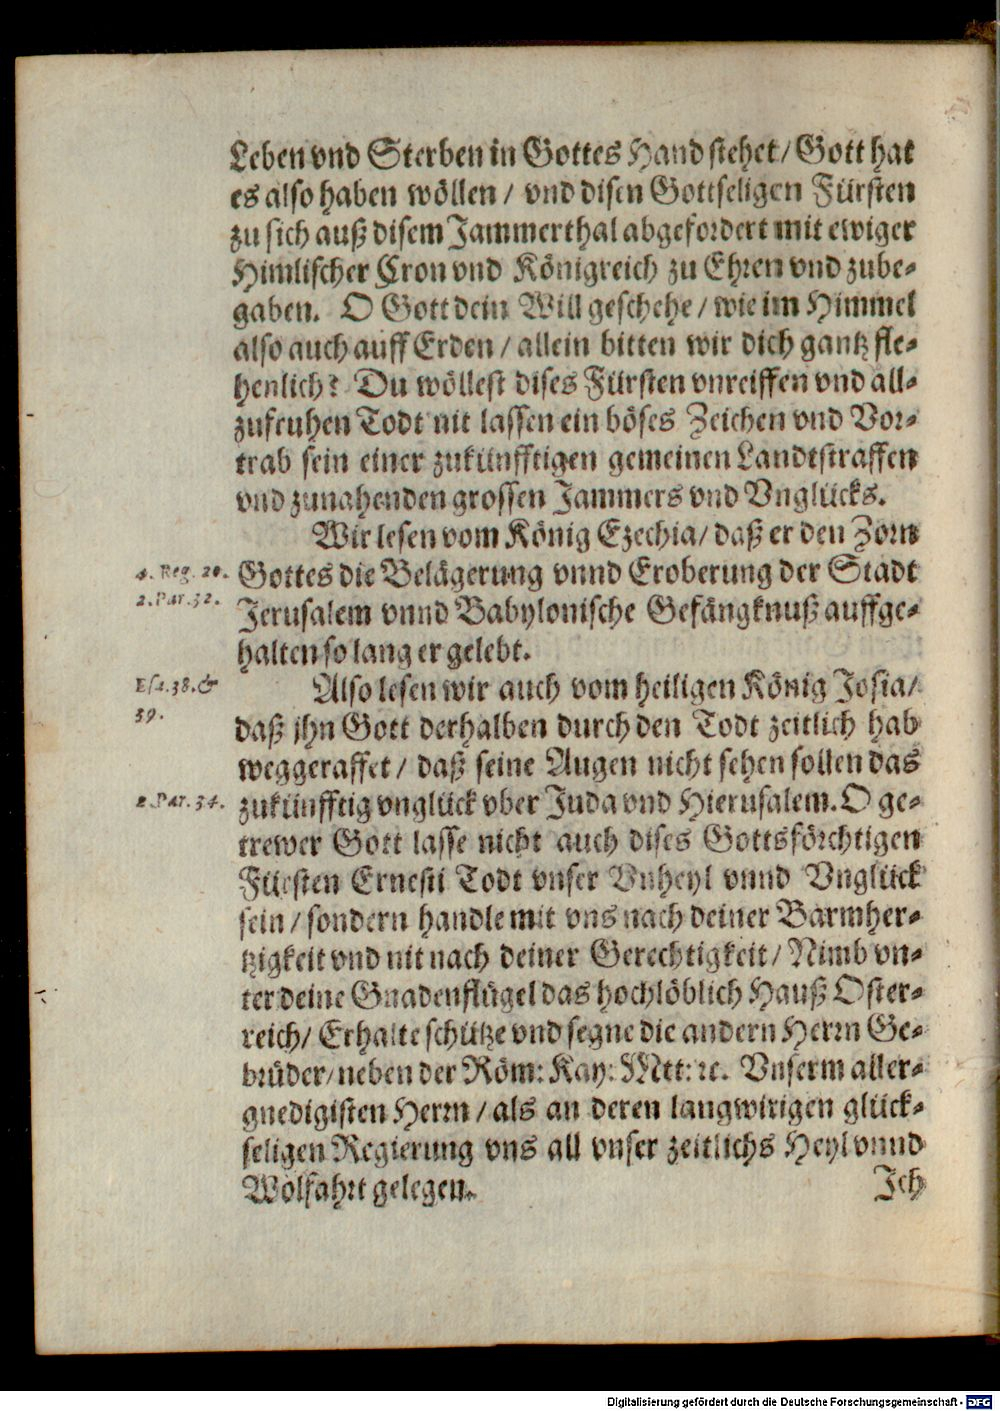 Leben vnd Sterben in Gottes Hand stehet/ Gott hat
es also haben wöllen/ vnd disen Gottseligen Fürsten
zu sich auß disem Jammerthal abgefordert mit ewiger
Himlischer Cron vnd Königreich zu Ehren vnd zube-
gaben. O Gott dein Will geschehe/ wie im Himmel
also auch auff Erden/ allein bitten wir dich gantz fle-
henlich? Du wöllest dises Fürsten vnreiffen vnd all-
zufruhen Todt nit lassen ein böses Zeichen vnd Vor-
trab sein einer zukünfftigen gemeinen Landtstraffen
vnd zunahenden grossen Jammers vnd Vnglücks.
Wir lesen vom König Ezechia/ daß er den Zorn
4. Reg. 20. Gottes die Belägerung vnnd Eroberung der Stadt
2. Par. 32. Jerusalem vnnd Babylonische Gefängknuß auffge-
halten so lang er gelebt.
Esa. 38. & Also lesen wir auch vom heiligen König Josia/
39. daß jhn Gott derhalben durch den Todt zeitlich hab
weggeraffet/ daß seine Augen nicht sehen sollen das
2. Par. 34. zukünfftig vnglück vber Juda vnd Hierusalem. O ge-
trewer Gott lasse nicht auch dises Gottsförchtigen
Fürsten Ernesti Todt vnser Vnheyl vnnd Vnglück
sein/ sondern handle mit vns nach deiner Barmher-
tzigkeit vnd nit nach deiner Gerechtigkeit/ Nimb vn-
ter deine Gnadenflügel das hochlöblich Hauß Oster-
reich/ Erhalte schütze vnd segne die andern Herrn Ge-
brüder/ neben der Röm: Kay: Mtt: ꝛc. Vnserm aller-
gnedigisten Herrn/ als an deren langwirigen glück-
seligen Regierung vns all vnser zeitlichs Heyl vnnd
Wolfahrt gelegen.
Ich
Digitalisierung gefördert durch die Deutsche Forschungsgemeinschaft - DFG